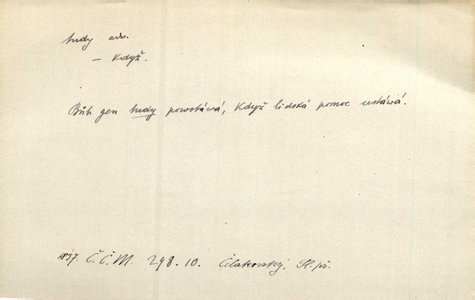 tudy adv.
— když.
Bůh gen tudy powstává, když lidská pomoc ustáwá.
1837. Č.Č.M. 298.10. Čelakowský, Sl. př.